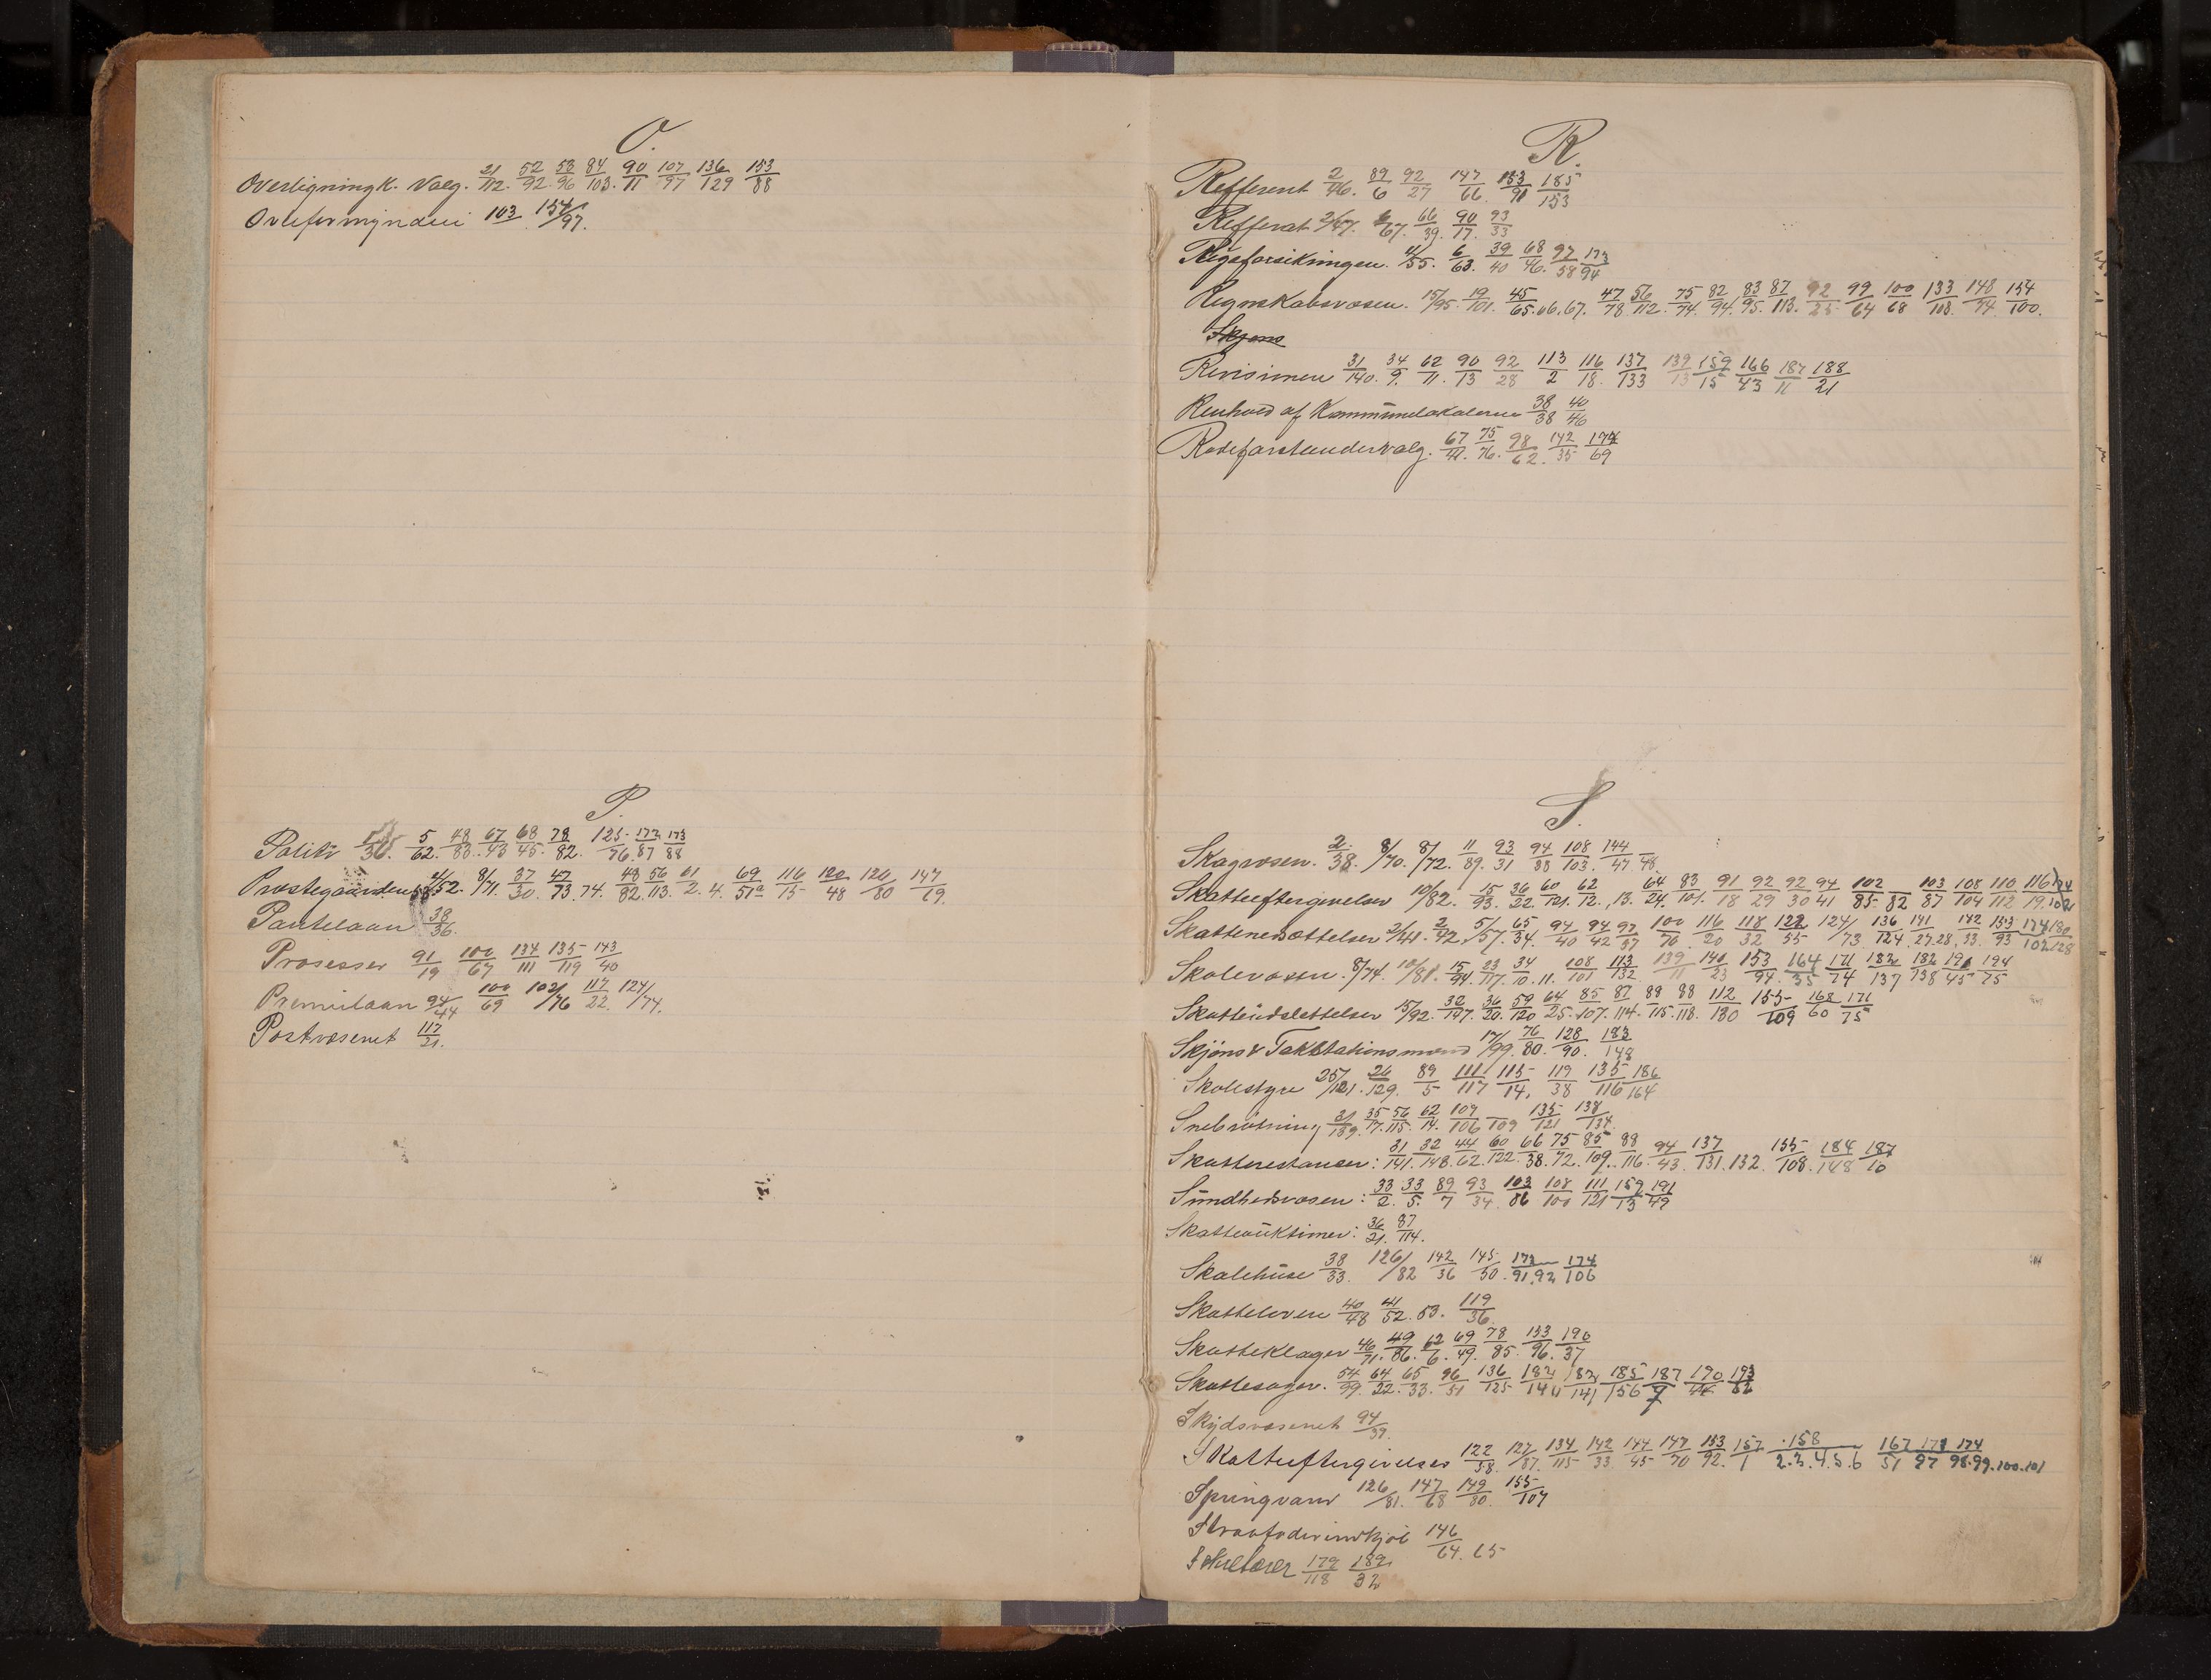 O.
Overligningsk. Valg. 21/112. 52/92. 53/96 84/103. 90/11 107/97 136/129 153/88
Overformynderi 103 154/97.
P.
Politi 36. 5/62. 48/83. 67/43 68/45. 78/82. 125/76. 172/87 173/88
Præstegaarden 4/52. 8/71. 37/30. 47/73 74. 48/82. 56/113. 61/2. 4. 69/51a 116/15 120/48 126/80 147/69.
Pantelaan 38/36.
Prosesser 91/19 100/67 134/111 135/119 143/40
Premielaan 94/44 100/69 102/76 117/22. 124/74.
Postvæsenet 117/21.
R.
Refferent 2/46. 89/6 92/27 147/66. 153/91 185/153
Refferat 2/47. 6/67. 66/39. 90/17. 93/33
Rigsforsikringen. 4/55. 6/63. 39/40 68/46. 97/58 173/94
Regnskabsvæsen. 15/95. 19/101. 45/65. 66. 67. 47/78 56/112. 75/74. 82/94. 83/95. 87/113. 92/25 99/64 100/68 133/108. 148/74. 154/100.
Skjøns
Revisionen 31/140. 34/9. 62/11. 90/13 92/28 113/2 116/18. 137/133 139/13 159/15 166/43 187/11 188/21
Renhold af Kommunelokalerne 38/38 40/46
Rodeforstandervalg. 67/41. 75/76. 98/62. 142/35 174/69
S.
Skogvæsen. 2/38. 8/70. 8/72. 11/89. 93/31 94/38 108/103. 144/47 48.
Skatteeftergivelser 10/82. 15/93. 36/22. 60/121. 62/12. 13. 64/24. 83/101. 91/18 92/29 92/30 94/41 102/85 82 103/87 108/104 110/112 116/19.
Skattenedsættelser 2/41. 2/42. 5/57. 65/34. 94/40 94/42 97/57 100/76 116/20 118/32 122/55 124/73. 136/124. 141/27.28. 142/33. 153/93 174/102 180/128
Skolevæsen. 8/74. 10/81. 15/94. 23/117. 34/10. 11. 108/101 113/132 139/11 140/23 153/94. 164/35 171/74 182/137 182/138 190/45 194/75
Skatteudslettelser 15/92. 32/147. 36/20. 59/120 64/25. 85/107. 87/114. 88/115. 88/118. 112/130 155/109 168/60 171/75
Skjöns & Takstationsmænd 17/99. 76/80. 128/90. 183/148
Skolestyre 25/121. 26/129. 89/5 111/117 115/14. 119/38 135/116 186/164
Snebrøtning 31/139. 35/17. 56/115. 62/14. 109/106 109 135/121 138/134.
Skatterestanser: 31/141. 32/148. 44/62. 60/122. 66/38. 75/72. 85/109. 88/116. 94/43. 137/131. 132. 155/108. 184/148 187/10
Sundhedsvæsen: 33/2. 33/5. 89/7 93/34 103/86 108/100 111/121 159/13 191/49
Skatteauktioner: 36/21. 87/114.
Skolehuse 38/33. 126/82 142/36 145/50. 173/91.92 174/106
Skatteloven 40/48 41/52. 53. 119/36
Skatteklager 46/71. 49/86. 62/6. 69/49. 78/85. 153/96. 190/37
Skattesager. 54/99. 64/22. 65/33. 96/51 136/125 182/140 182/141 185/156 187/9 190/44 193/62
Skydsvæsenet 94/39.
Skatteeftergivelses 122/58. 127/87. 134/115 142/33 144/45 147/70 153/92. 157/1 158/2.3.4.5.6 167/51 173/97 174/98.99.100.101
Springvand 126/81. 147/68 149/80. 155/107
Kraftfoderindkjøb 146/64. 65
Sekretærer 179/118 189/32